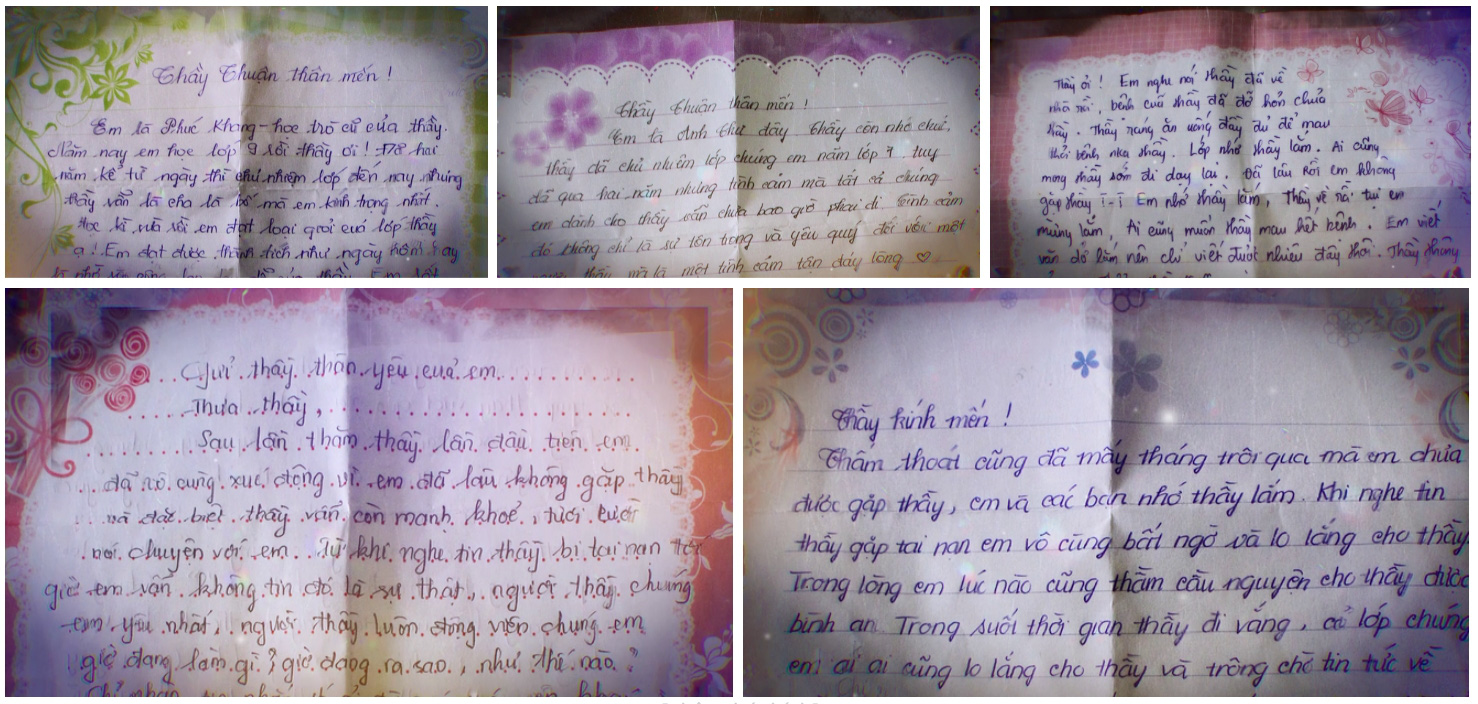 Thầy Thuận thân mến !
Em là Phúc Khang - học trò cũ của thầy.
Năm nay em học lớp 9 rồi thầy ơi ! Đã hai
năm kể từ ngày thầy chủ nhiệm lớp đến nay nhưng
thầy vẫn là cha là bố mà em kính trọng nhất.
Học kì vừa rồi em đạt loại giỏi của lớp thầy
ạ ! Em đạt được thành tích như ngày hôm nay
Thầy Thuận thân mến !
Em là Anh Thư đây thầy còn nhớ chứ,
thầy đã chủ nhiệm lớp chúng em năm lớp 7. tuy
đã qua hai năm nhưng tình cảm mà tất cả chúng
em dành cho thầy vẫn chưa bao giờ phai đi. tình cảm
đó không chỉ là sự tôn trọng và yêu quý đối với một
người thầy mà là một tình cảm tận đáy lòng ♡
Thầy ơi ! Em nghe nói thầy đã về
nhà rồi, bệnh của thầy đã đỡ hơn chưa
thầy. Thầy ráng ăn uống đầy đủ để mau
khỏi bệnh nha thầy. Lớp nhớ thầy lắm. Ai cũng
mong thầy sớm đi dạy lại. Đã lâu rồi em không
gặp thầy i-i Em nhớ thầy lắm, Thầy về rồi tụi em
mừng lắm, Ai cũng muốn thầy mau hết bệnh. Em viết
văn dở lắm nên chỉ viết được nhiêu đây thôi. Thầy không
Gửi thầy thân yêu của em
Thưa thầy,
Sau lần thăm thầy lần đầu tiên em
đã vô cùng xúc động vì em đã lâu không gặp thầy
và đặc biệt thầy vẫn còn mạnh khoẻ, tươi cười
nói chuyện với em. Từ khi nghe tin thầy bị tai nạn tới
giờ em vẫn không tin đó là sự thật, người thầy chúng
em yêu nhất, người thầy luôn động viên chúng em
giờ đang làm gì ? giờ đang ra sao, như thế nào ?
Thầy kính mến !
Thấm thoát cũng đã mấy tháng trôi qua mà em chưa
được gặp thầy, em và các bạn nhớ thầy lắm. Khi nghe tin
thầy gặp tai nạn em vô cùng bất ngờ và lo lắng cho thầy.
Trong lòng em lúc nào cũng thầm cầu nguyện cho thầy được
bình an. Trong suốt thời gian thầy đi vắng, cả lớp chúng
em ai ai cũng lo lắng cho thầy và trông chờ tin tức về